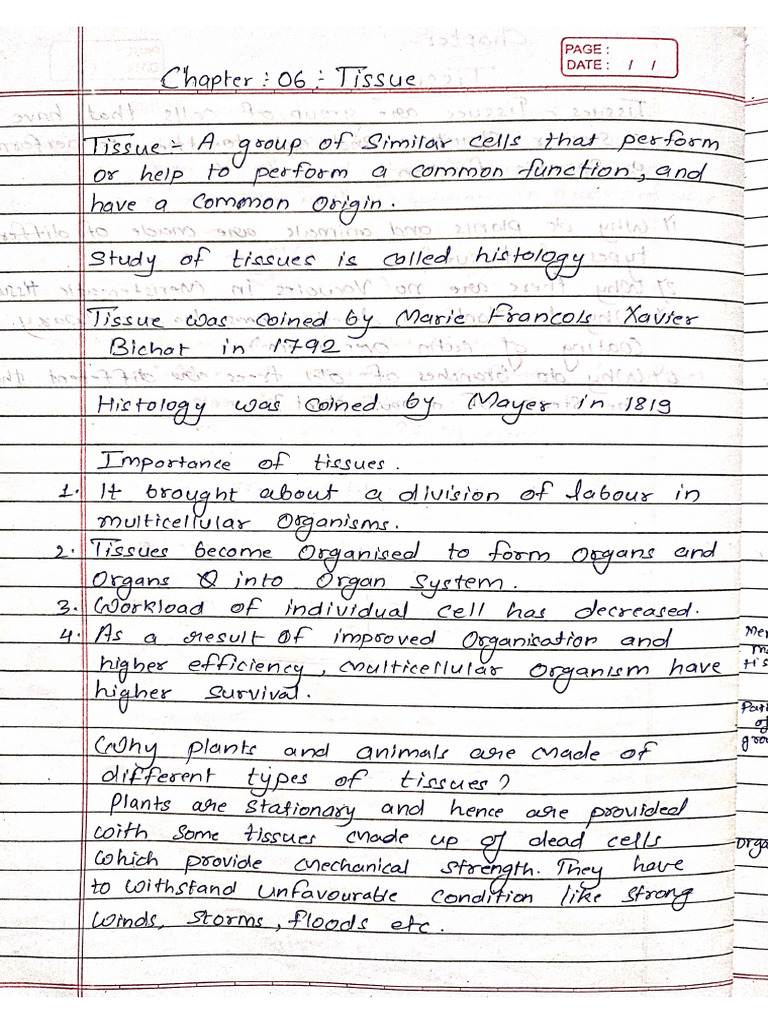 PAGE :
DATE : / /
Chapter : 06 : Tissue
Tissue :- A group of Similar cells that perform
or help to perform a common function, and
have a common Origin.
Study of tissues is called histology
Tissue was coined by Marie Francols Xavier
Bichat in 1792
Histology was coined by Mayer in 1819
Importance of tissues.
1. It brought about a division of labour in
multicellular Organisms.
2. Tissues become Organised to form organs and
Organs into Organ System.
3. Workload of individual cell has decreased.
4. As a result of improved Organisation and
higher efficiency, multicellular Organism have
higher survival.
Why plants and animals are made of
different types of tissues?
Plants are stationary and hence are provided
with some tissues made up of dead cells
which provide mechanical strength. They have
to withstand unfavourable condition like strong
winds, storms, floods etc.